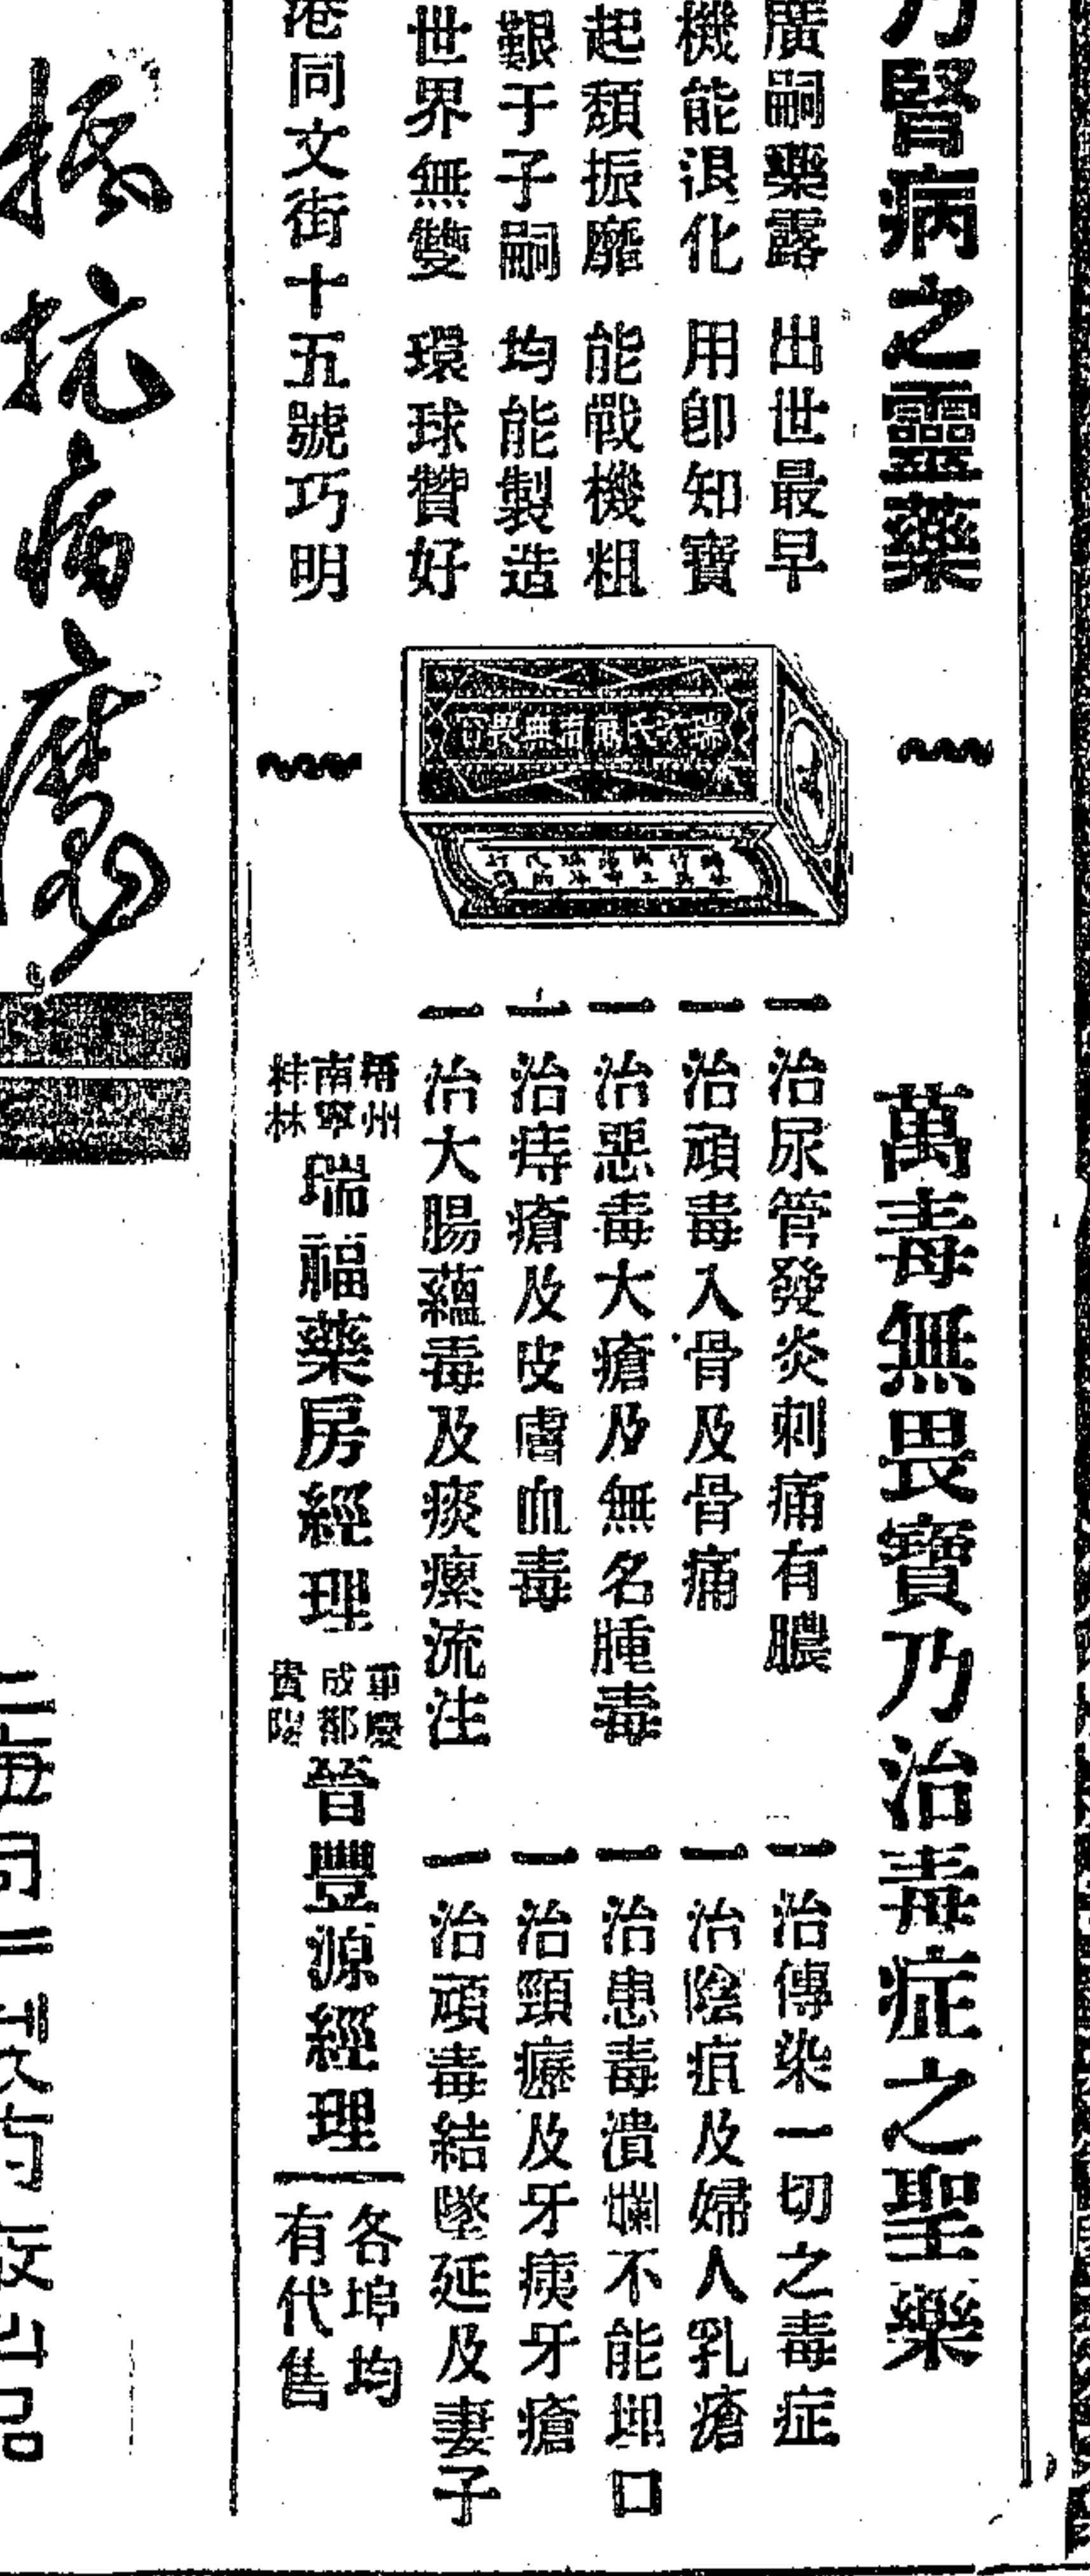 乃腎病之靈藥
廣嗣藥露 出世最早
機能退化 用即知寶
起頹振靡 能戰機粗
艱于子嗣 均能製造
世界無雙 環球贊好
港同文街十五號巧明
萬毒無畏寶乃治毒症之聖藥
一治尿管發炎刺痛有膿
一治頑毒入骨及骨痛
一治惡毒大瘡及無名腫毒
一治痔瘡及皮膚血毒
一治大腸蘊毒及痰瘰流注
一治傳染一切之毒症
一治陰疽及婦人乳瘡
一治患毒潰爛不能埋口
一治頸癧及牙痍牙瘡
一治頑毒結墜延及妻子
梧州
南寧
桂林
瑞福藥房經理
重慶
成都
貴陽
晉豐源經理
各埠均
有代售
抗病魔